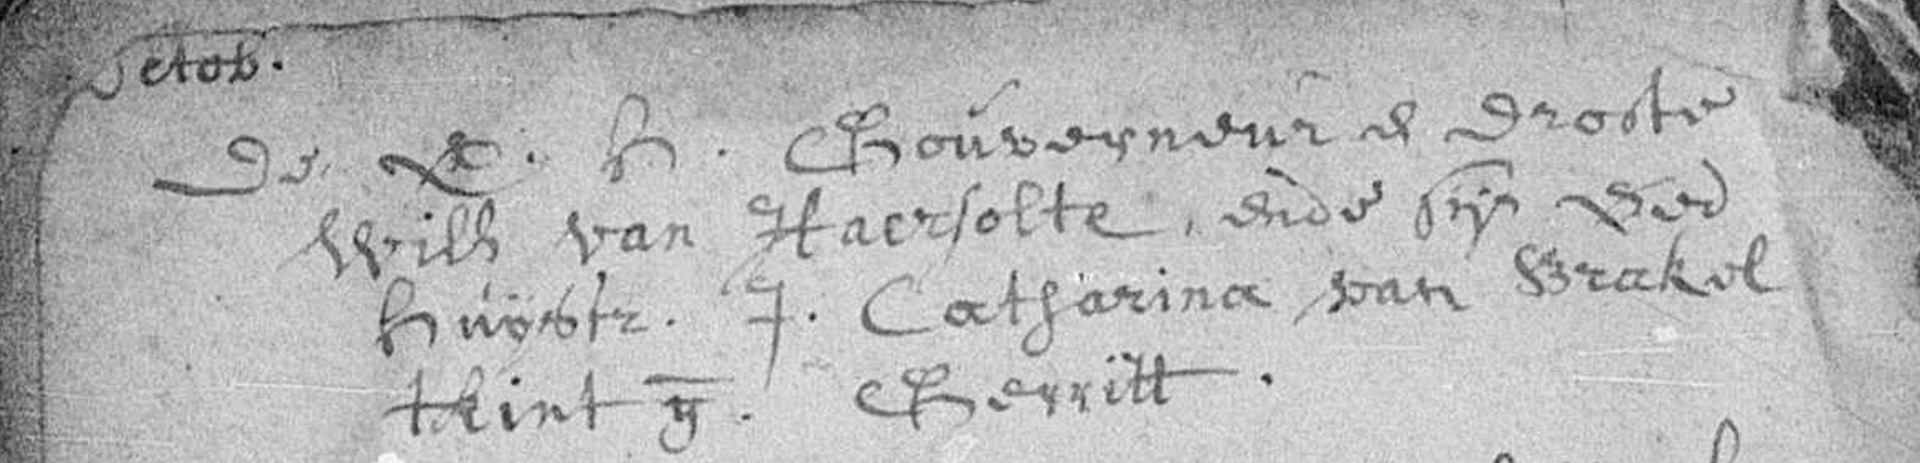 octob.
De E. H. Gouverneur e Droste
Will van Haersolte, ende sijn Ved
Huijsfr. J. Catharina van Brakel
tkint g. Gerritt.